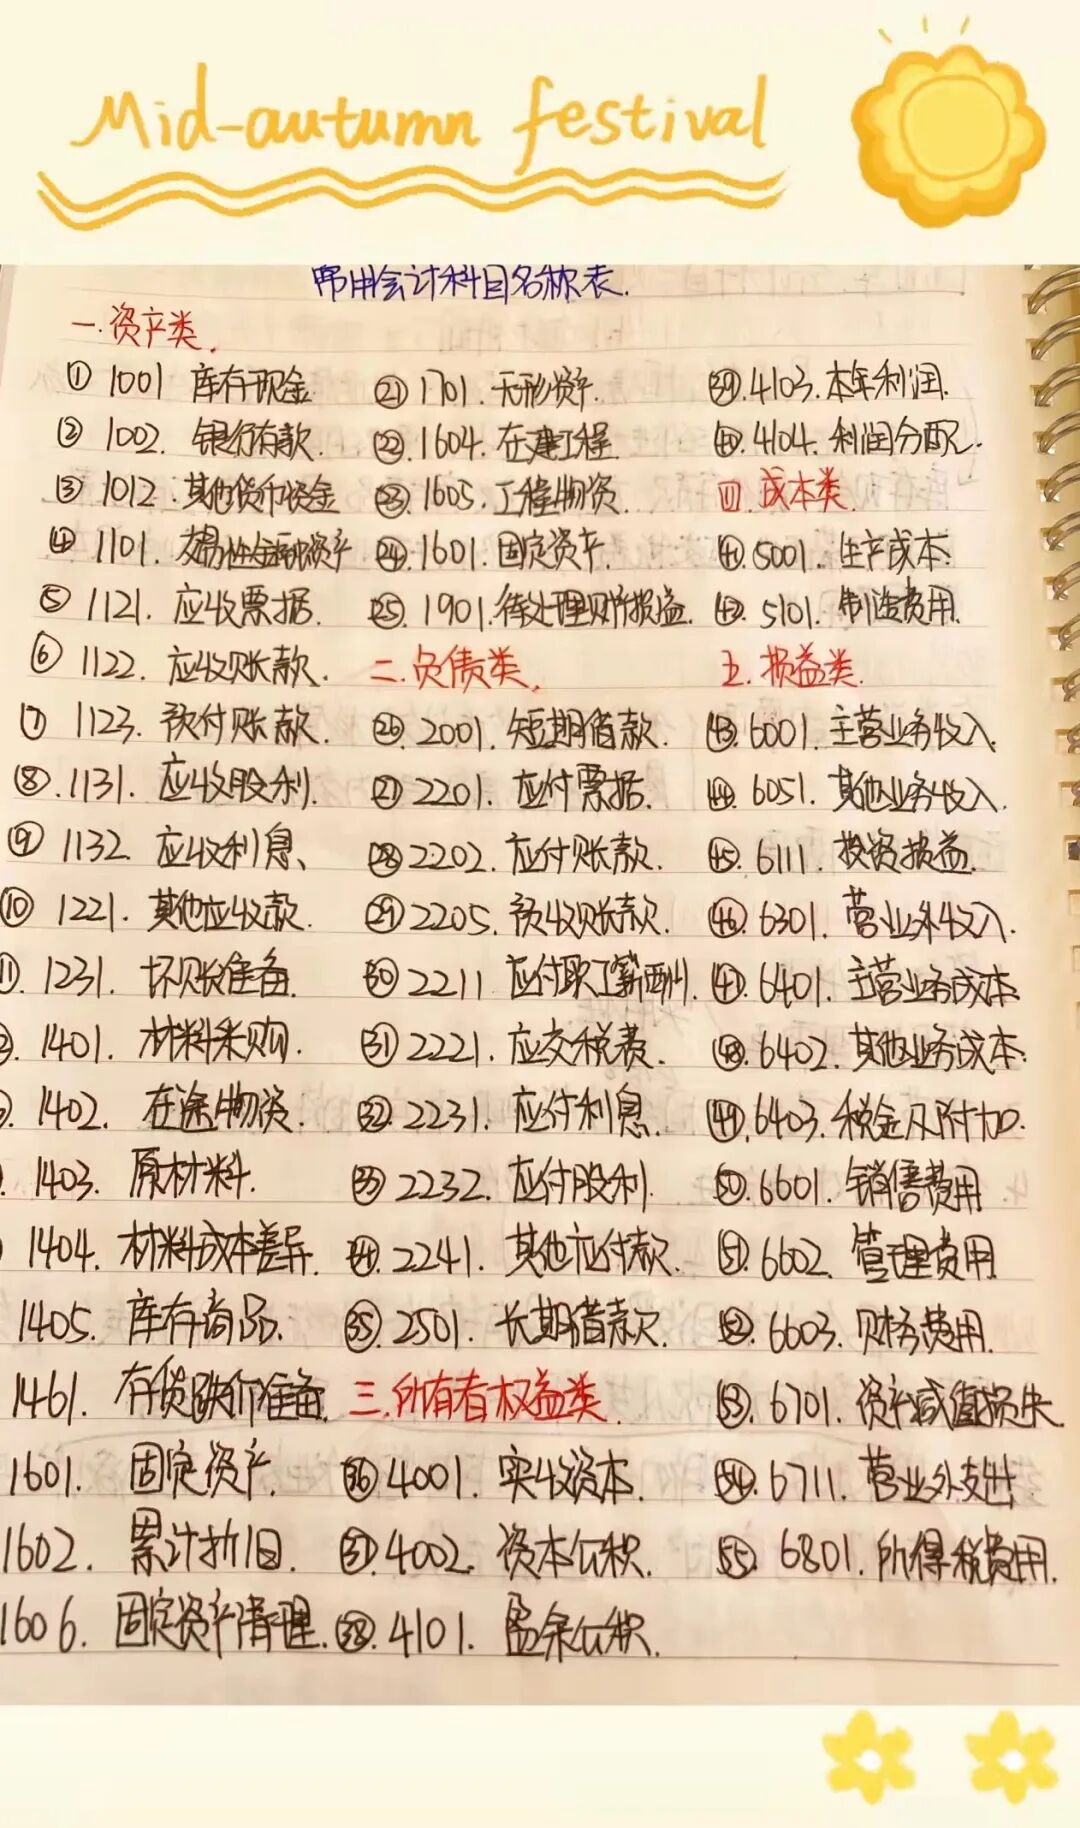 Mid-autumn festival
常用会计科目名称表.
一.资产类.
① 1001 库存现金
② 1002. 银行存款
③ 1012. 其他货币资金
④ 1101. 交易性金融资产
⑤ 1121. 应收票据.
⑥ 1122. 应收账款.
⑦ 1123. 预付账款.
⑧.1131. 应收股利.
⑨ 1132. 应收利息、
⑩ 1221. 其他应收款.
1231. 坏账准备.
1401. 材料采购.
1402. 在途物资.
1403. 原材料.
1404. 材料成本差异.
1405. 库存商品.
1461. 存货跌价准备.
1601. 固定资产.
1602. 累计折旧.
1606. 固定资产清理.
㉑ 1701. 无形资产.
㉒.1604. 在建工程.
㉓.1605. 工程物资.
㉔.1601. 固定资产.
㉕. 1901.待处理财产损益.
二.负债类.
㉖. 2001. 短期借款.
㉗ 2201. 应付票据.
㉘ 2202. 应付账款.
㉙ 2205. 预收账款.
㉚ 2211 应付职工薪酬.
㉛ 2221. 应交税费.
㉜. 2231. 应付利息.
㉝ 2232. 应付股利.
㉞. 2241. 其他应付款.
㉟. 2501. 长期借款.
三.所有者权益类.
㊱ 4001. 实收资本.
㊲ 4002. 资本公积.
㊳. 4101. 盈余公积.
㊴.4103.本年利润.
㊵.4104. 利润分配.
四.成本类.
㊶.5001. 生产成本.
㊷. 5101. 制造费用.
五.损益类.
㊸.6001. 主营业务收入.
㊹. 6051. 其他业务收入.
㊺. 6111. 投资损益.
㊻. 6301. 营业外收入.
㊼. 6401. 主营业务成本.
㊽.6402. 其他业务成本.
㊾.6403. 税金及附加.
㊿.6601. 销售费用
51. 6602. 管理费用
52. 6603. 财务费用.
53. 6701. 资产减值损失.
54. 6711. 营业外支出
55. 6801. 所得税费用.